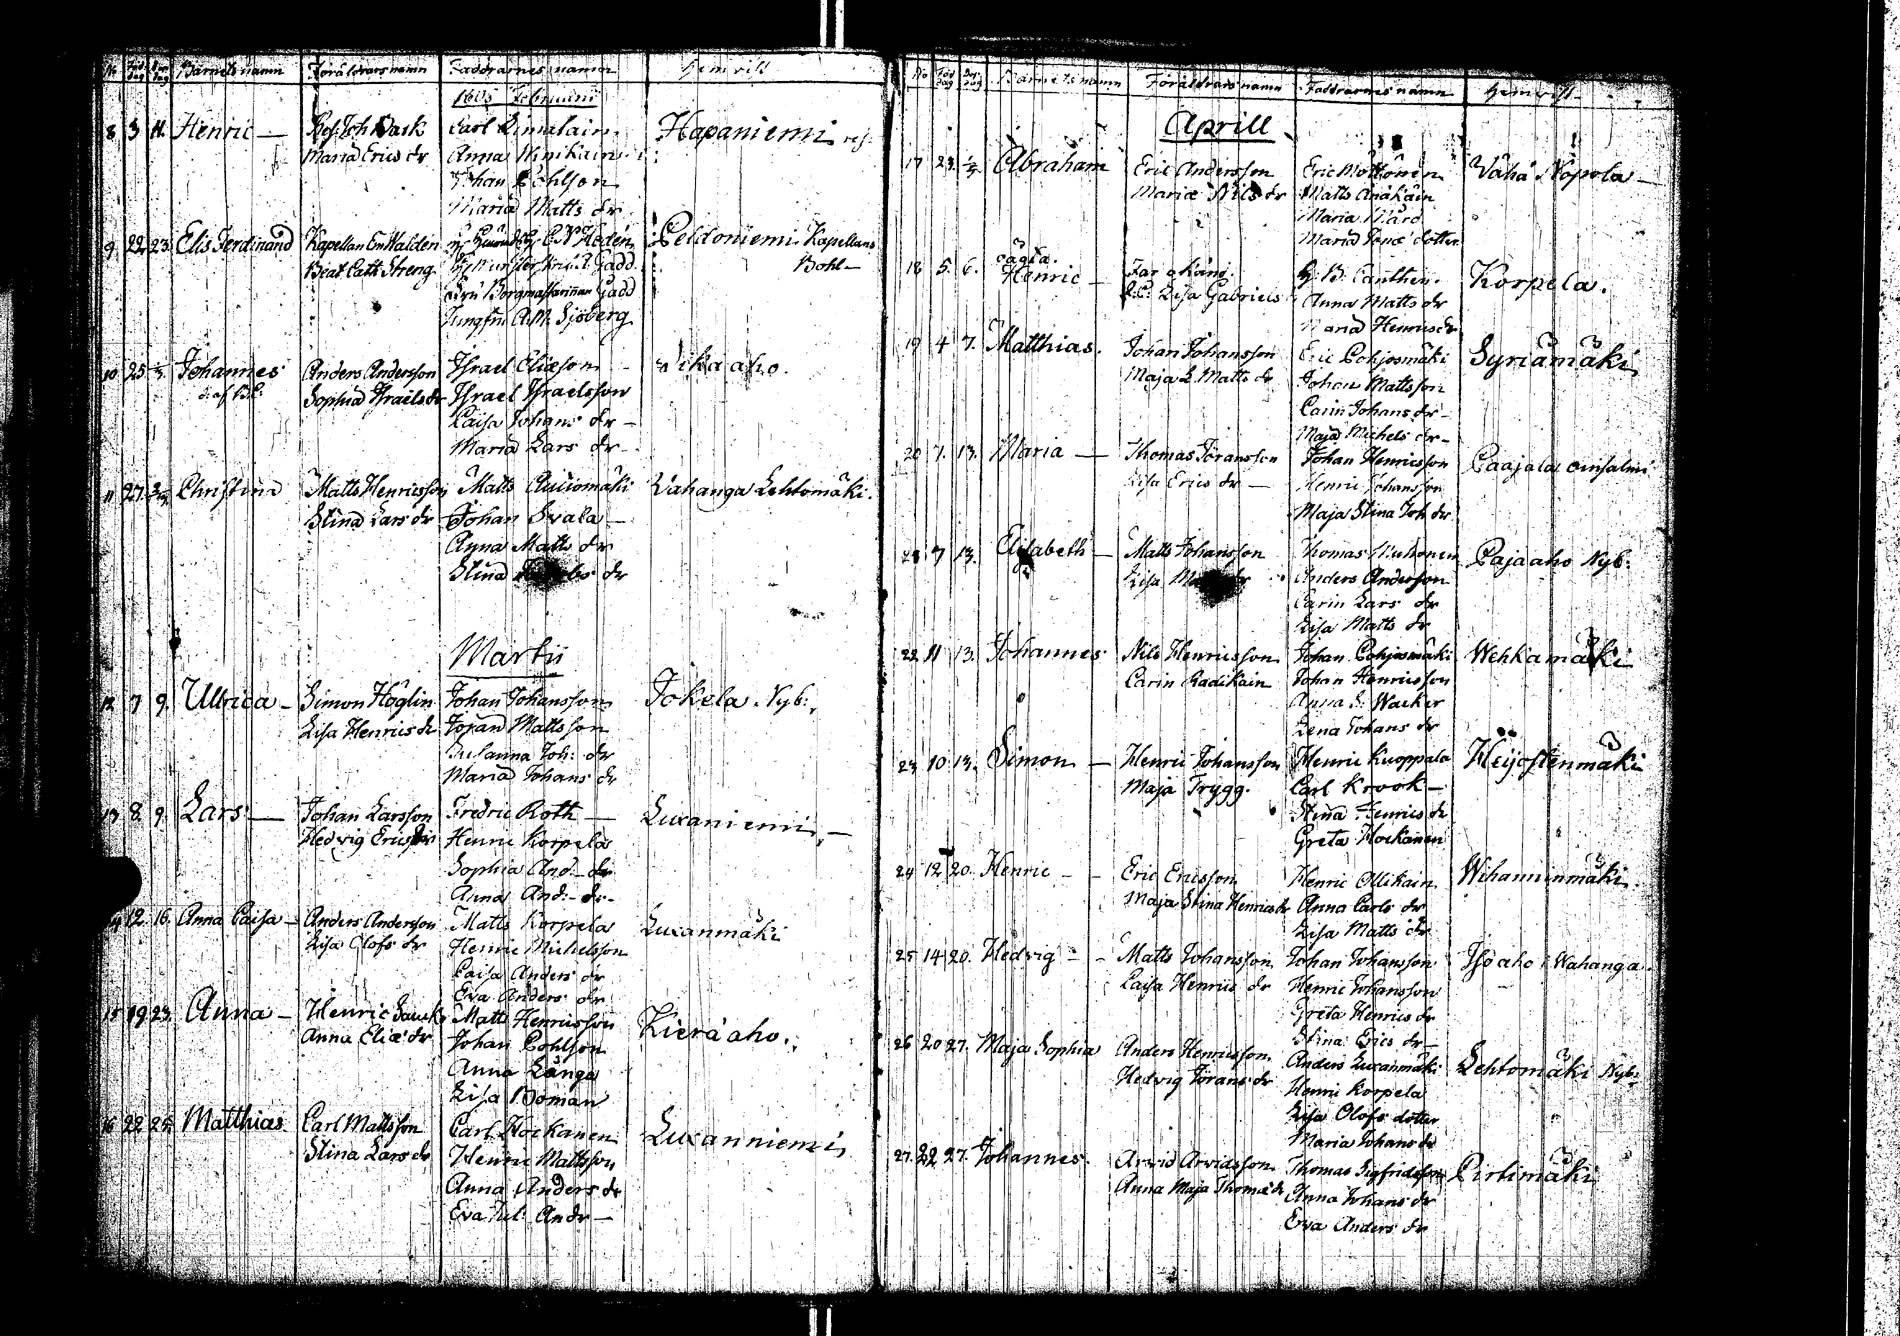 No Föd. dag Dop dag Barnets namn Föräldrars namn Faddrarnes namn Hemvist
Februarii
8 3 11. Henric — Joh Carl Hapaniemi
Maria Erics dr Anna
Johan Pohlson
Maria Matts dr
9. 22 23. Elis Ferdinand Kapellan Em Waldén C N Hedén Peldoniemi Kapellans
Beat. Cath Streng Gadd Bohl —
Fru Borgmästarinnan Gadd
Jungfru A. M. Sjöberg
10 25 Johannes Anders Andersson Israel Eliæson Vika aho.
Sophia Israels dr Israel Israelsson
Caisa Johans dr —
Maria Lars dr —
11 27. Christina Matts Henricsson Matts Wahanga Lehtomäki.
Stina Lars dr Johan Svala —
Anna Matts dr
Stina dr
Martii
12 7 9. Ullrica — Simon Höglin Johan Johansson Jokela Nyb:
Lisa Henrics dr Jöran Mattsson
Susanna Joh: dr
Maria Johans dr
13 8. 9. Lars — Johan Larsson Fredric Roth — Luxaniemi —
Hedvig Erics dr Henric Korpela
Sophia And. dr
Anna And: dr.
14 12. 16. Anna Caisa — Anders Andersson Matts Korpela Luxanmäki
Lisa Olofs dr Henric Michelsson
Caisa Anders dr
Eva Anders dr
15 19. 23. Anna — Henric Matts Henricsson Kieräaho.
Anna Eliæ dr Johan Pohlson
Anna Långa
Lisa Boman
16 22 25. Matthias Carl Mattsson Carl Hockanen Luxanniemi
Stina Lars dr Henric Mattsson
Anna Anders dr
Eva Jul: And r —
No Föd dag Dop dag Barnets namn Föräldrars namn Faddrarnes namn Hemvist
Aprill
17 23. Abraham Eric Andersson Eric Möttönen Vähä Nopola —
Maria Nils dr Matts
Maria
Maria Jonæ dotter
18 5. 6. oägta. Henric — Far okänd. Korpela.
Lisa Gabriels Anna Matts dr
Maria Henrics dr
19 4 7. Matthias. Johan Johansson Eric Pohjosmäki Syriämäki
Maja L. Matts dr Johan Mattsson
Carin Johans dr —
Maja Michels dr —
20 7. 13. Maria — Thomas Jöransson Johan Henricsson Paajala
Lisa Erics dr — Henric Johansson
Maja Stina Joh dr
7 13. Elisabeth — Matts Johansson Thomas Muhonen Pajaaho Nyb:
Lisa dr Anders Andersson
Carin Lars dr
Lisa Matts dr
22 11 13. Johannes Nils Henricsson Johan Pohjosmäki Wehkamäki
Carin Radikain Johan Henricsson
Anna S: Wacker
Lena Johans dr
23 10 13. Simon — Henric Johansson Henric Kuoppala Heijostenmäki
Maja Trygg. Carl Krook —
Stina Henrics dr
Greta Hockanen
24 12 20. Henric — Eric Ericsson Henric Ollikain Wihannenmäki.
Maja Stina Henrics dr Anna Carls dr
Lisa Matts dr
25 14 20. Hedvig — Matts Johansson Johan Johansson Iso aho i Wahanga.
Caisa Henrics dr Henric Johansson
Greta Henrics dr
Stina Erics dr —
26 20 27. Maja Sophia Anders Henricsson Anders Luxanmäki Lehtomäki Nyb:
Hedvig Jörans dr Henric Korpela
Lisa Olofs dotter
Maria Johans dr
27. 22 27. Johannes. Arvid Arvidsson Thomas Sigfridsson Pirtimäki
Anna Maja Thomæ dr Anna Johans dr
Eva Anders dr